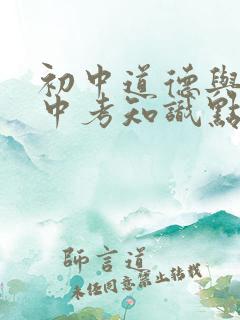 初中道德與
中考知識點
師言道
未经同意禁止转载